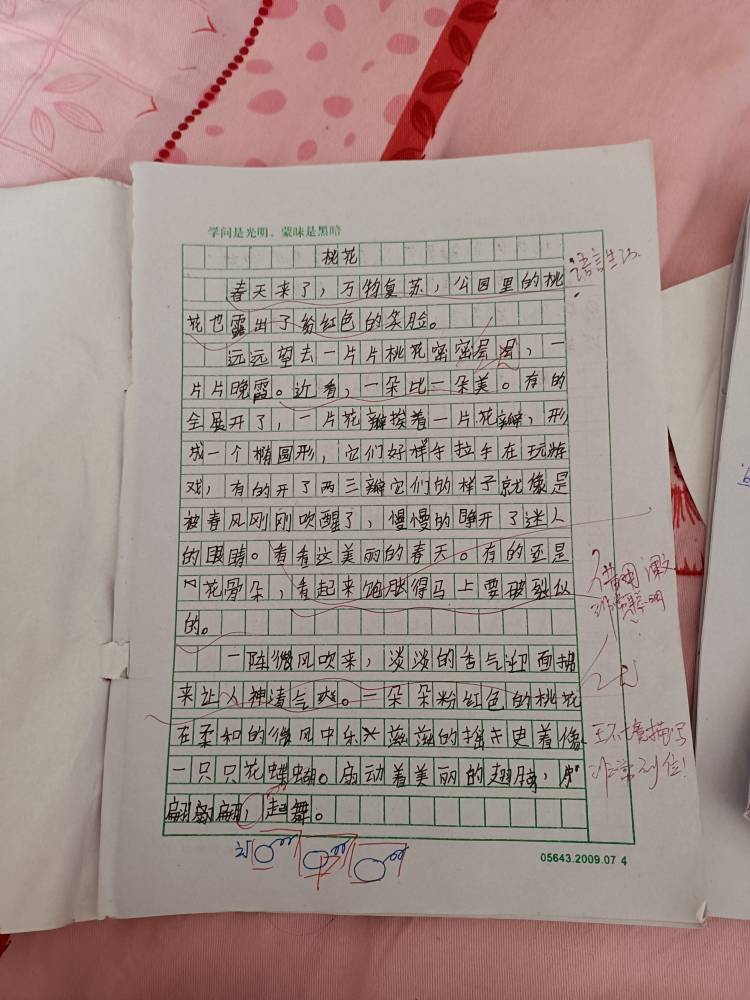 学问是光明，蒙昧是黑暗
桃花
春天来了，万物复苏，公园里的桃
花也露出了粉红色的笑脸。
远远望去一片片桃花密密层层，一
片片晚霞。近看，一朵比一朵美。有的
全展开了，一片花瓣挨着一片花瓣，形
成一个椭圆形，它们好样手拉手在玩游
戏，有的开了两三瓣它们的样子就像是
被春风刚刚吹醒了，慢慢的睁开了迷人
的眼睛。看看这美丽的春天。有的还是
花骨朵，看起来饱胀得马上要破裂似
的。
一阵微风吹来，淡淡的香气迎面
来让人神清气爽。一朵朵粉红色的桃花
在柔和的微风中乐滋滋的摇着像
一只只花蝴蝶。扇动着美丽的翅膀，
翩翩，起舞。
语言生动
环境描写
非常到位！
05643.2009.07 4